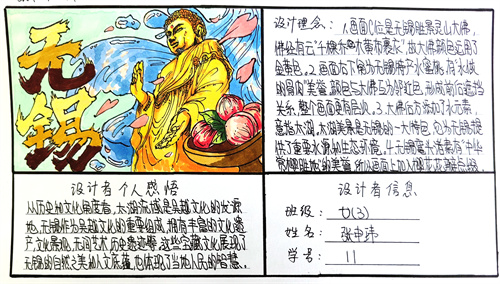 无锡
设计理念：1.画面C位是无锡胜景灵山大佛，
佛经有云
金黄色。2.画面右下角为无锡特产水蜜桃，有
的美誉，颜色与大佛互为邻近色，形成前后遮挡
关系，整个画面更有层次。3.大佛后方添加了水元素，
意指太湖，太湖美景是无锡的一大特色，也为无锡提
供了重要水源和生态环境。4.无锡鼋头渚素有"中华
的美誉，所以画面上加入樱花花瓣
设计者个人感悟
从历史和文化角度看，太湖流域是吴越文化的发源
地，无锡作为吴越文化的重要组成，拥有丰富的文化遗
产，文化景观，民间艺术，历史遗迹等，这些宝藏文化展现了
无锡的自然之美和人文底蕴，也体现了当地人民的智慧。
设计者信息
班级：七(3)
姓名：张中玮
学号：11